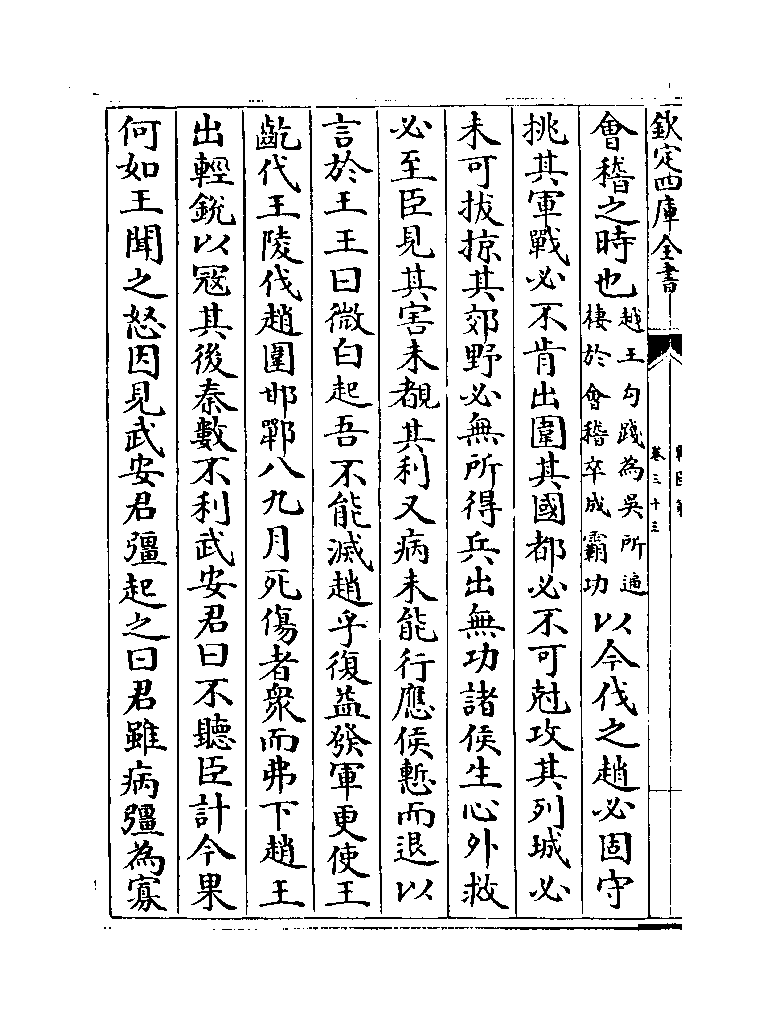 欽定四庫全書
卷三十三
會稽之時也越王勾踐為吳所逼棲於會稽卒成霸功以今伐之趙必固守
挑其軍戰必不肯出圍其國都必不可尅攻其列城必
未可拔掠其郊野必無所得兵出無功諸侯生心外救
必至臣見其害未覩其利又病未能行應侯慙而退以
言於王王曰微白起吾不能滅趙乎復益發軍更使王
齕代王陵伐趙圍邯鄲八九月死傷者衆而弗下趙王
出輕銳以冦其後秦數不利武安君曰不聽臣計今果
何如王聞之怒因見武安君彊起之曰君雖病彊為寡